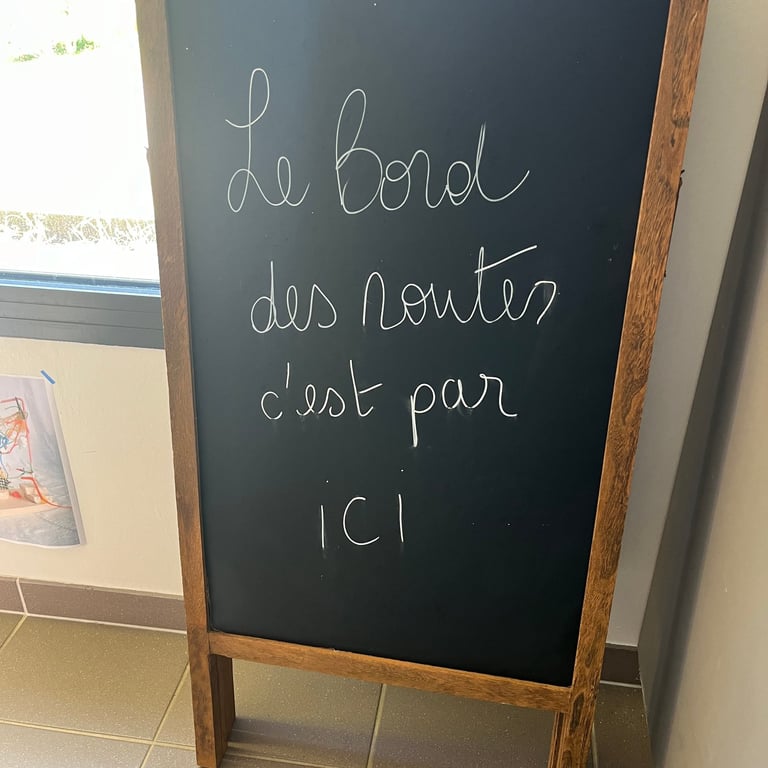 Le Bord
des routes
c'est par
ici